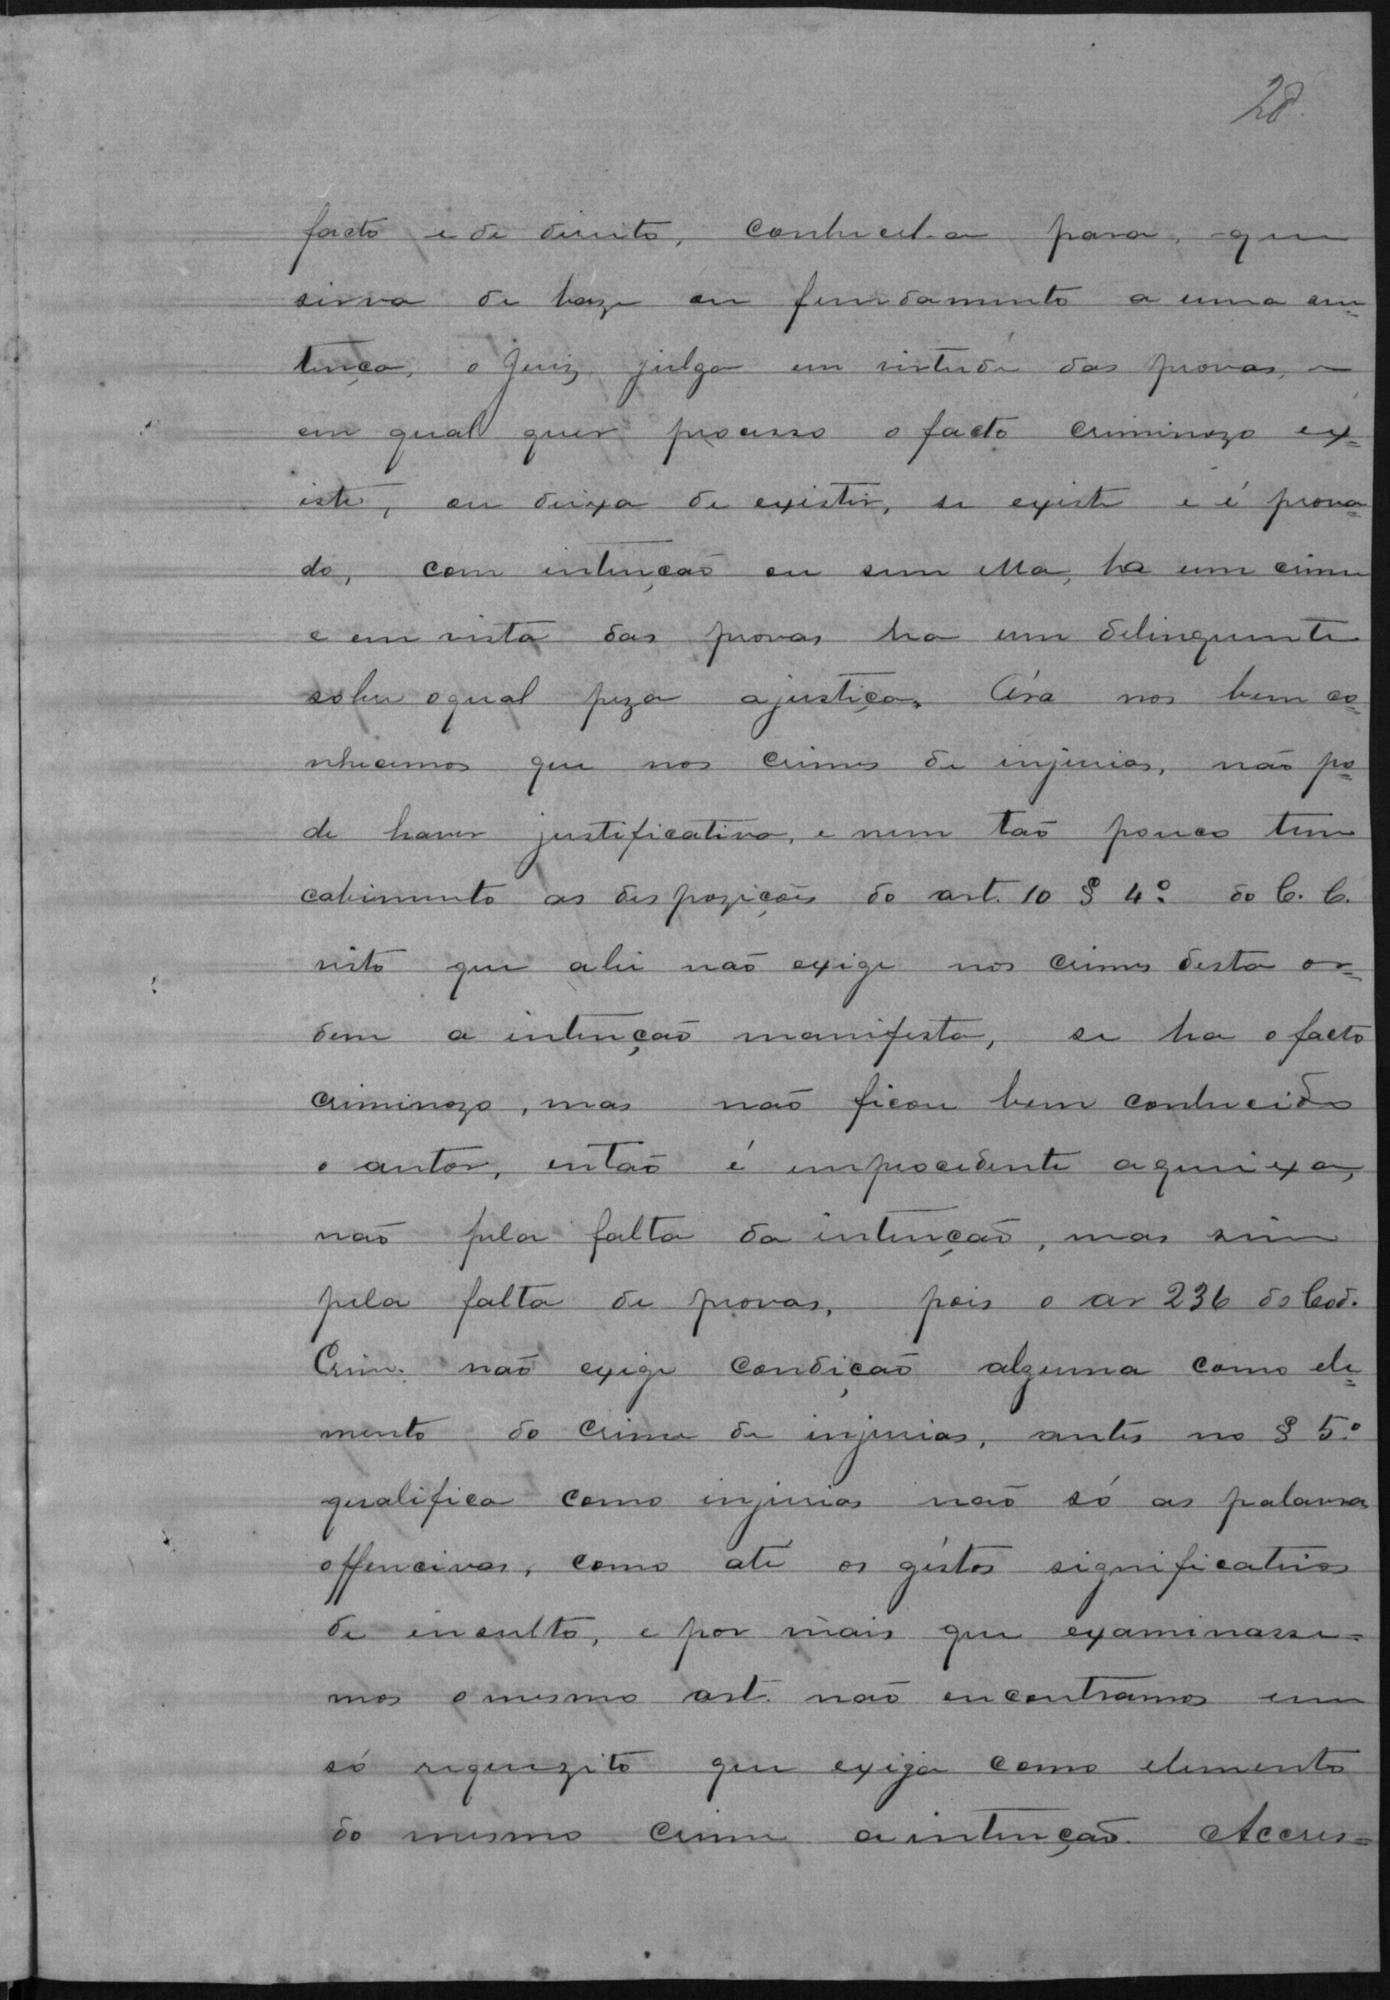 28.
facto e de direito, conhecel-a para, que
sirva de baze ou fundamento a uma sen=
tença, o Juiz julga em virtude das provas, e
em qual quer processo o facto criminozo ex=
iste, ou deixa de existir, se existe e é prova=
do, com intenção ou sem ella, ha um crime
e em vista das provas ha um delinquente
sobre o qual peza a justiça. Óra nos bem co=
nhecemos que nos crimes de injurias, não po=
de haver justificativa, e nem tão pouco tem
cabimento as despozições do art. 10 § 4º do C. C.
visto que alli não exige nos crimes desta or=
dem a intenção manifesta, se ha o facto
criminozo, mas não ficou bem conhecido
o autor, então é improcedente a queixa,
não pela falta da intenção, mas sim
pela falta de provas, pois o ar 236 do Cod.
Crim. não exige condição alguma como ele=
mento do crime de injurias, antes no § 5º
qualifica como injurias não só as palavras
offencivas, como até os géstos significativos
de insulto, e por mais que examinasse=
mos o mesmo art. não encontramos um
só requezito que exija como elemento
do mesmo crime a intenção. Accres=